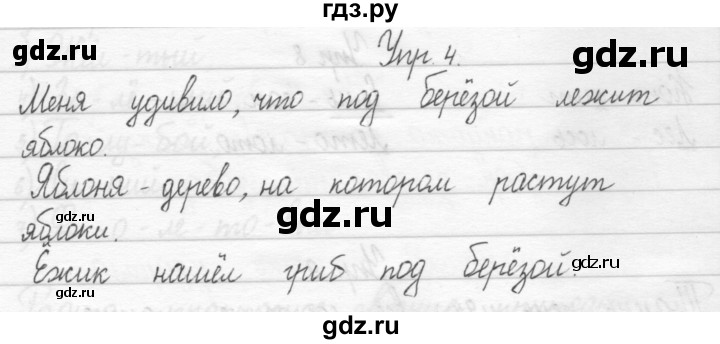 гдз.ру
gdz.ru gdz.ru
Упр. 4.
Меня удивило, что под берёзой лежит
яблоко.
gdz.ru gdz.ru
Яблоня - дерево, на котором растут
gdz.ru gdz.ru
яблоки.
gdz.ru
Ёжик нашёл гриб под берёзой.
gdz.ru gdz.ru
gdz.ru